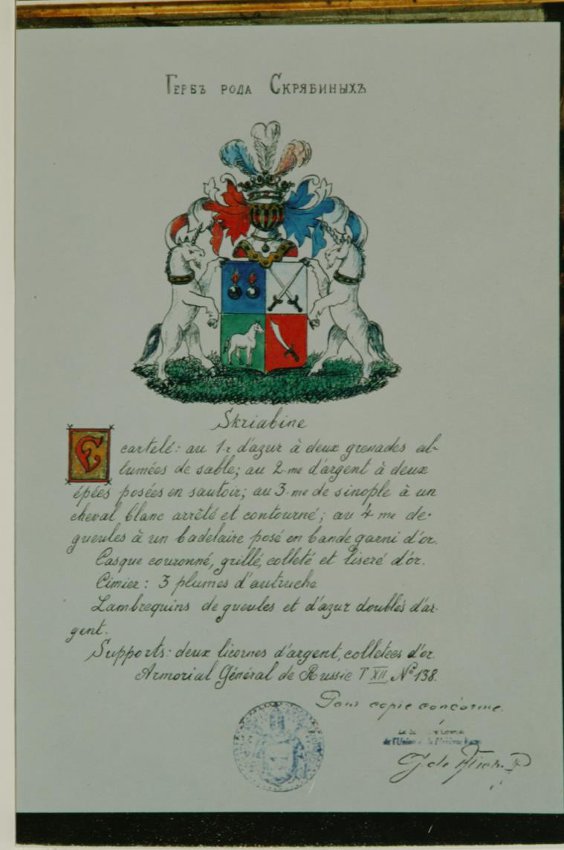 Гербъ рода Скрябиныхъ
Skriabine
Ecartelé: au 1-r d'azur à deux grenades al-
lumées de sable; au 2-me d'argent à deux
épées posées en sautoir; au 3-me de sinople à un
cheval blanc arrêté et contourné; au 4-me de
gueules à un badelaire posé en bande garni d'or.
Casque couronné, grillé, colleté et liseré d'or.
Cimier: 3 plumes d'autruche
Lambrequins de gueules et d'azur doublés d'ar-
gent.
Supports: deux licornes d'argent, colletées d'or
Armorial Général de Russie T XII № 138.
Pour copie conforme.
de l'Union de la Noblesse